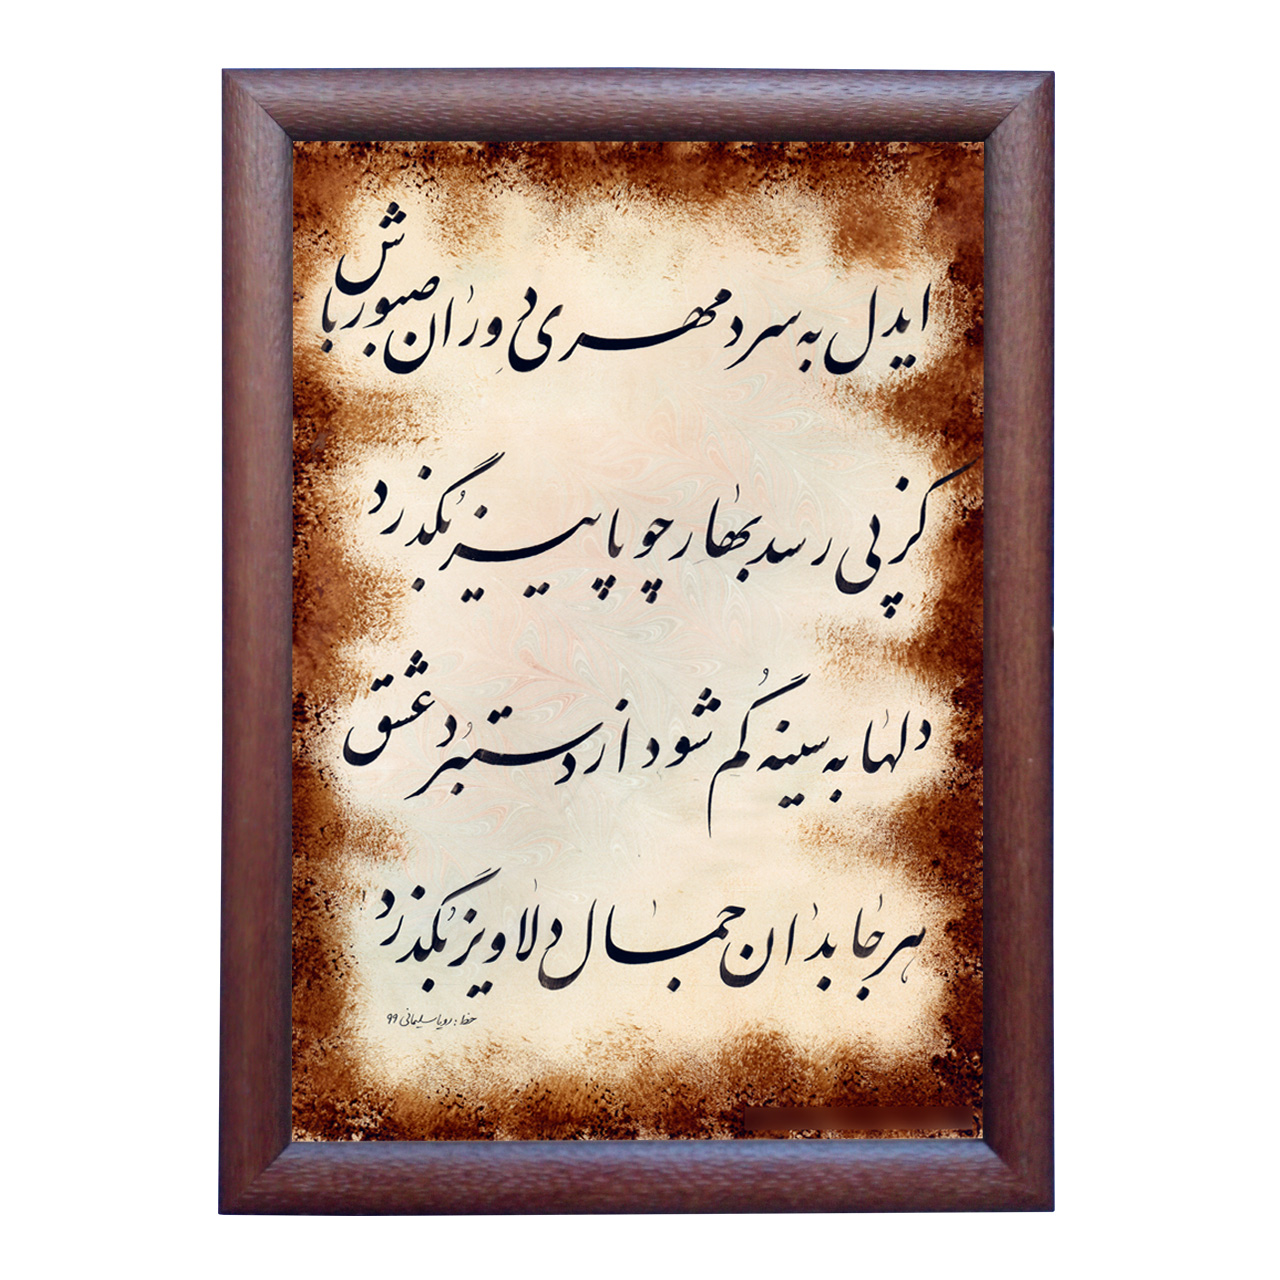 ایدل به سرد مهری دوران صبور باش
کز پی رسد بهار چو پاییز بگذرد
دلها به سینه گم شود از دستبرد عشق
هر جا بدان جمال دلاویز بگذرد
خط : رویا سلیمانی ۹۹